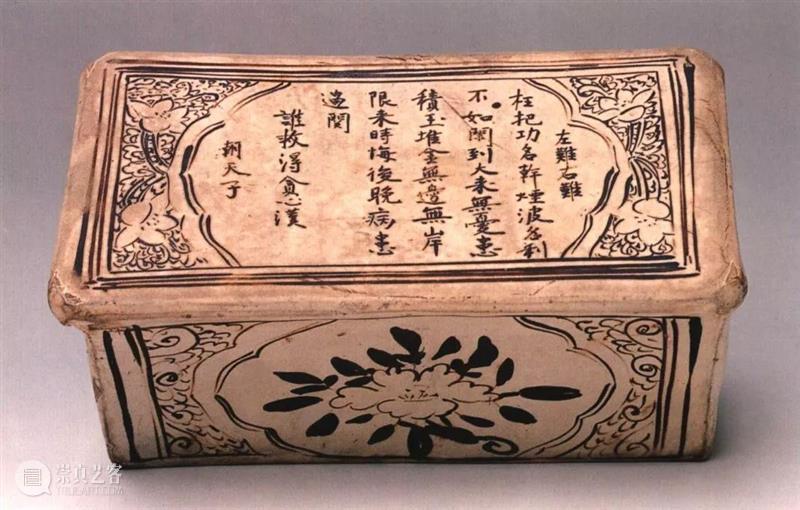 左難右難
枉把功名幹煙波名利
不如閑到大来無憂患
積玉堆金無邊無岸
限来時悔後晚病患
過関
誰救得貪心漢
朝天子
崇真艺客
TRUEART.COM